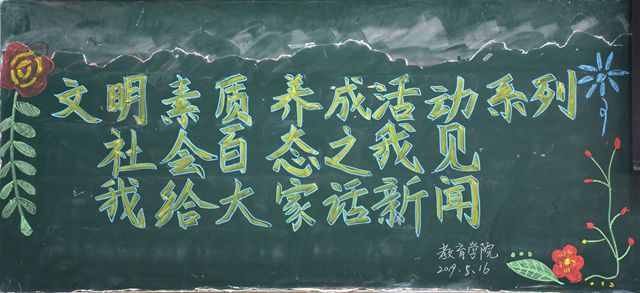 文明素质养成活动系列
社会百态之我见
我给大家话新闻
教育学院
2019.5.16